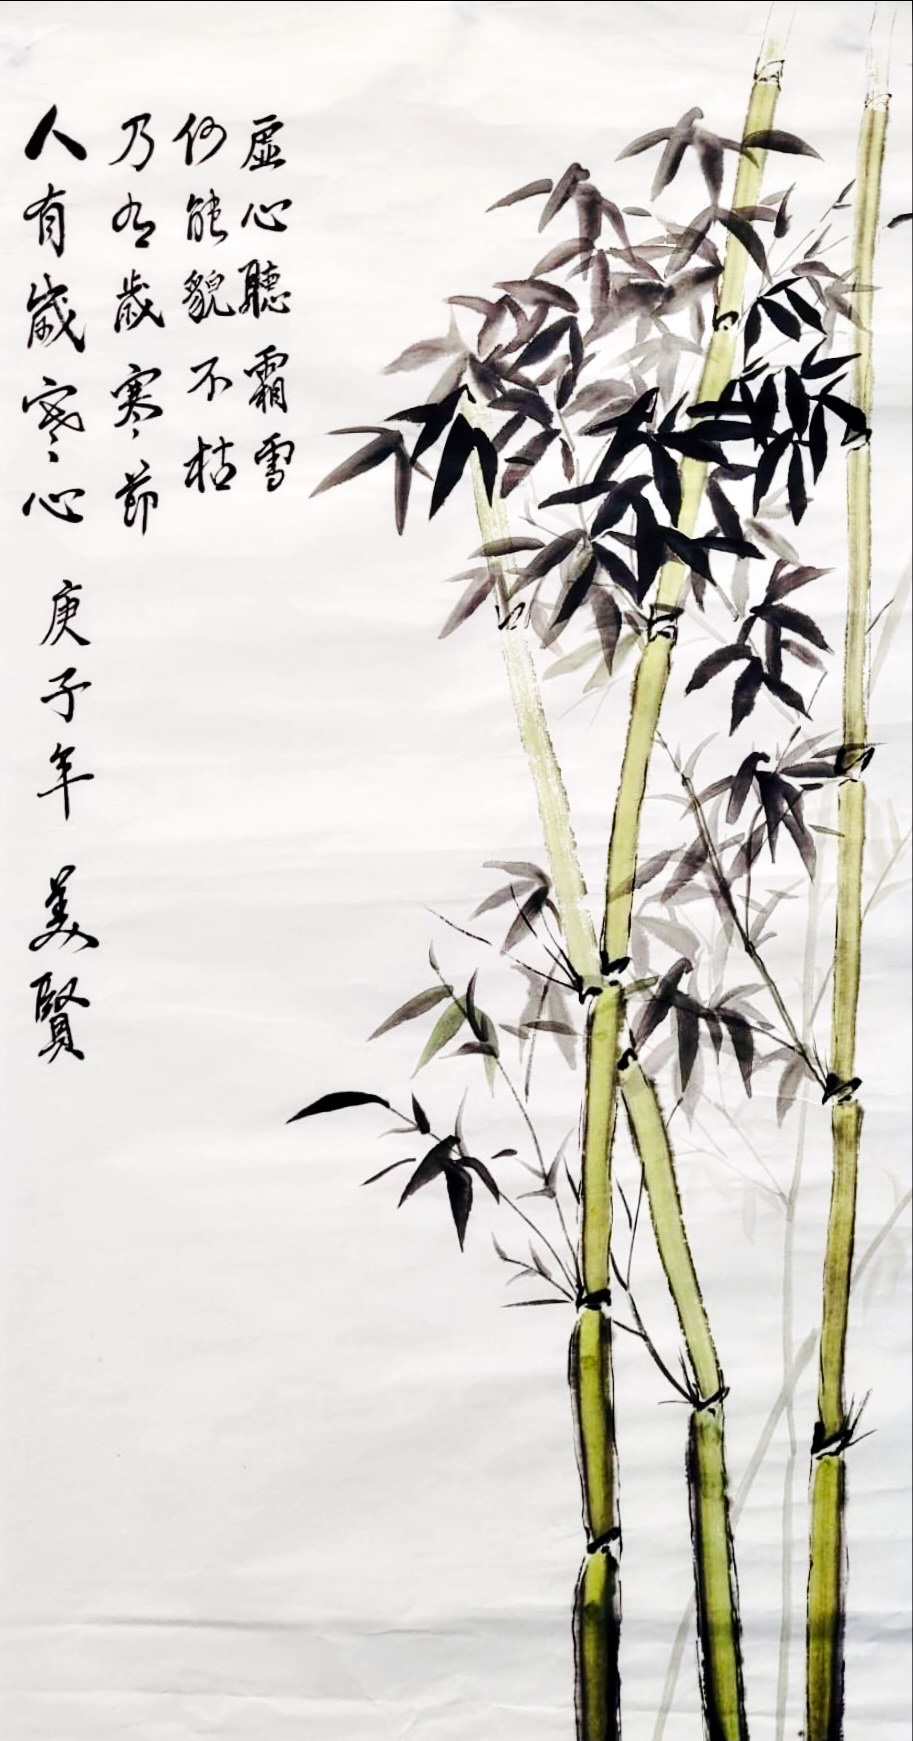 虛心聽霜雪
何能貌不枯
乃有歲寒節
人有歲寒心
庚子年 美賢